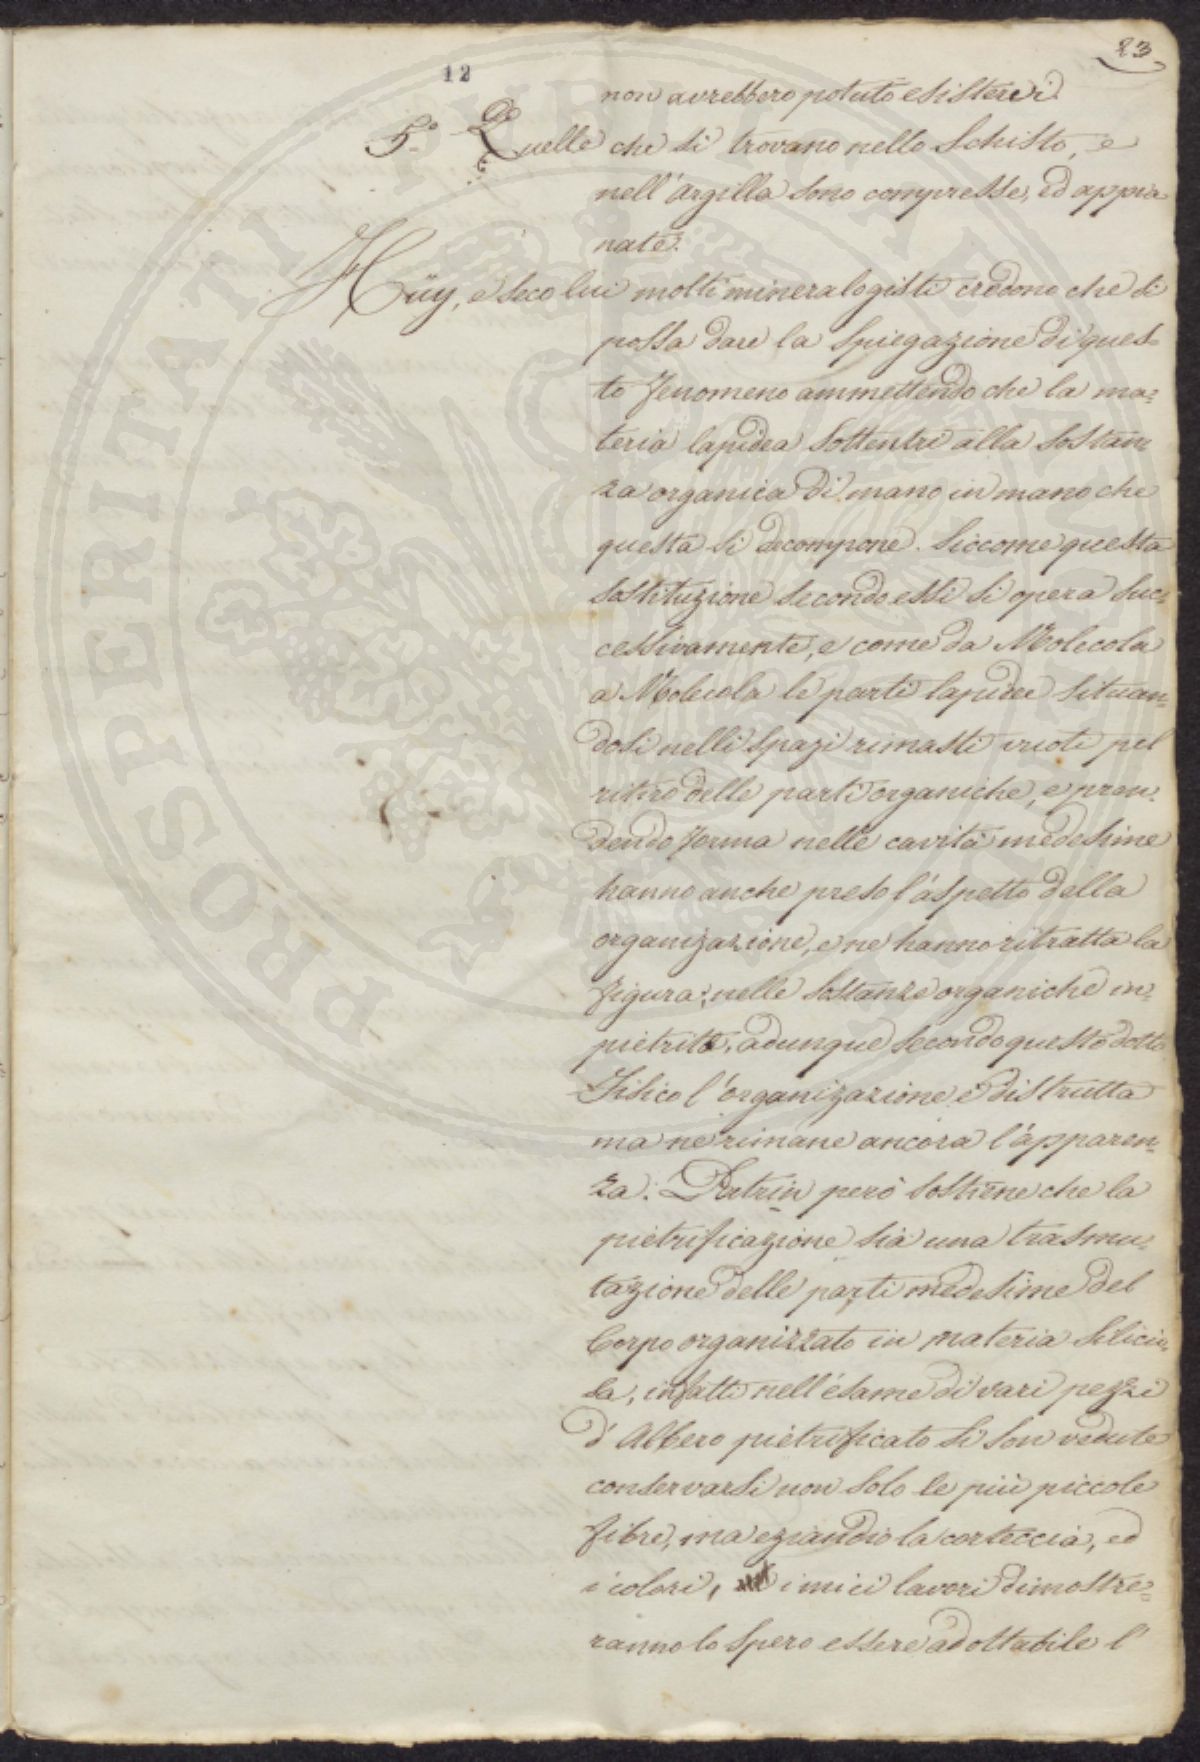 23
12
non avrebbero potuto esisterci.
5.° Quelle che si trovano nello Schisto, e
nell'Argilla sono compresse, ed appia
nate.
Haüy, e seco lui molti mineralogisti credono che si
possa dare la spiegazione di ques-
to fenomeno ammettendo che la ma=
teria lapidea sottentri alla sostan=
za organica di mano in mano che
questa si decompone. Siccome questa
sostituzione secondo essi si opera suc=
cessivamente, e come da Molecola
a Molecola le parti lapidee situan=
dosi nelli spazi rimasti vuoti pel
ritiro delle parti organiche, e pren=
dendo forma nelle cavità medesime
hanno anche preso l'aspetto della
organizazione, e ne hanno ritratta la
figura; nelle sostanze organiche in=
pietrite, adunque secondo questo dotto
Fisico l'organizazione è distrutta
ma ne rimane ancora l'apparen=
za. Patrin però sostiene che la
pietrificazione sia una trasmu=
tazione delle parti medesime del
Corpo organizzato in materia silicio=
sa, infatti nell'esame di vari pezzi
d'Albero pietrificato si son vedute
conservarsi non solo le più piccole
fibre, ma eziandio la corteccia, ed
i colori, i miei lavori dimostre=
ranno lo spero essere adottabile l'
PROSPERITATI PUBLICAE